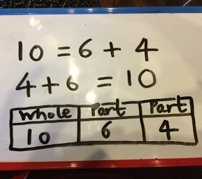 10 = 6 + 4
4 + 6 = 10
Whole Part Part
10 6 4